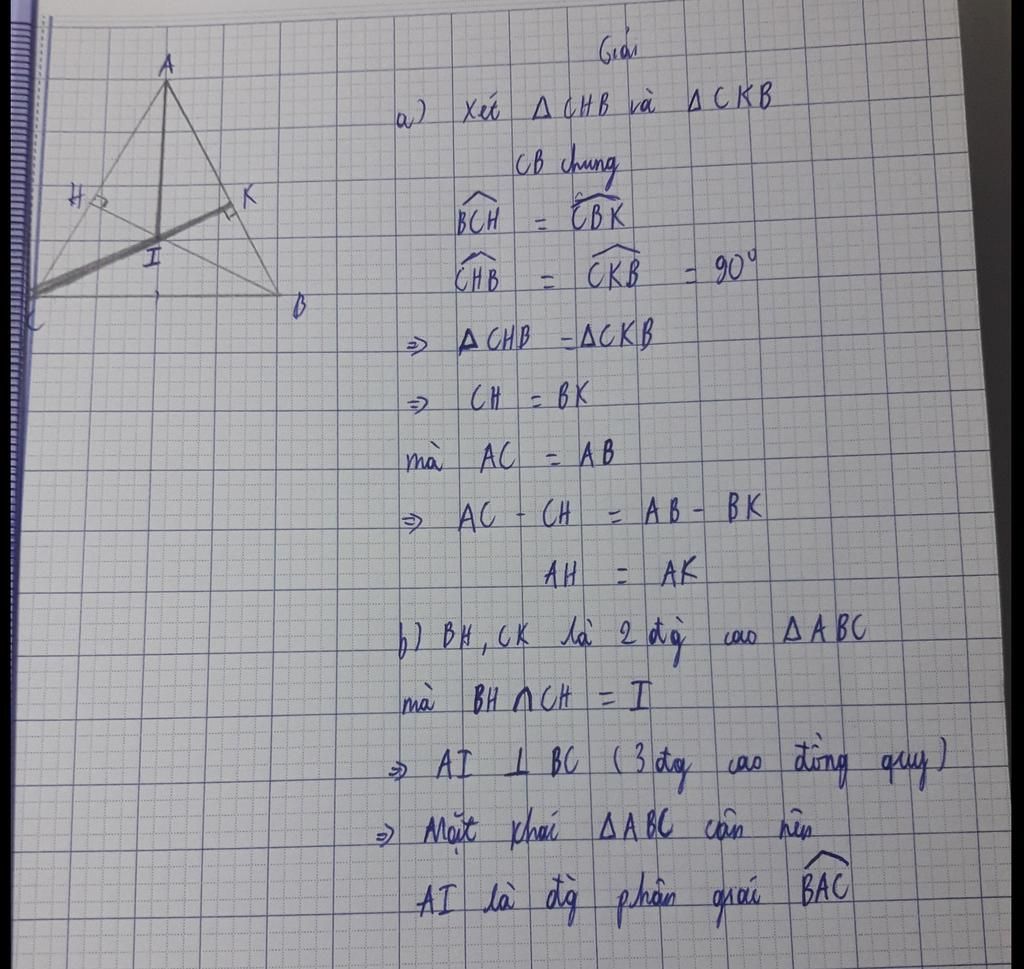 A
H
K
I
C
B
Giải
a) Xét Δ CHB và Δ CKB
CB chung
BCH = CBK
CHB = CKB = 90°
=> Δ CHB = Δ CKB
=> CH = BK
mà AC = AB
=> AC - CH = AB - BK
AH = AK
b) BH, CK là 2 đg̀ cao Δ ABC
mà BH ∩ CH = I
=> AI ⊥ BC (3 đg cao đồng quy)
=> Mặt khác Δ ABC cân nên
AI là đg̀ phân giác BAC